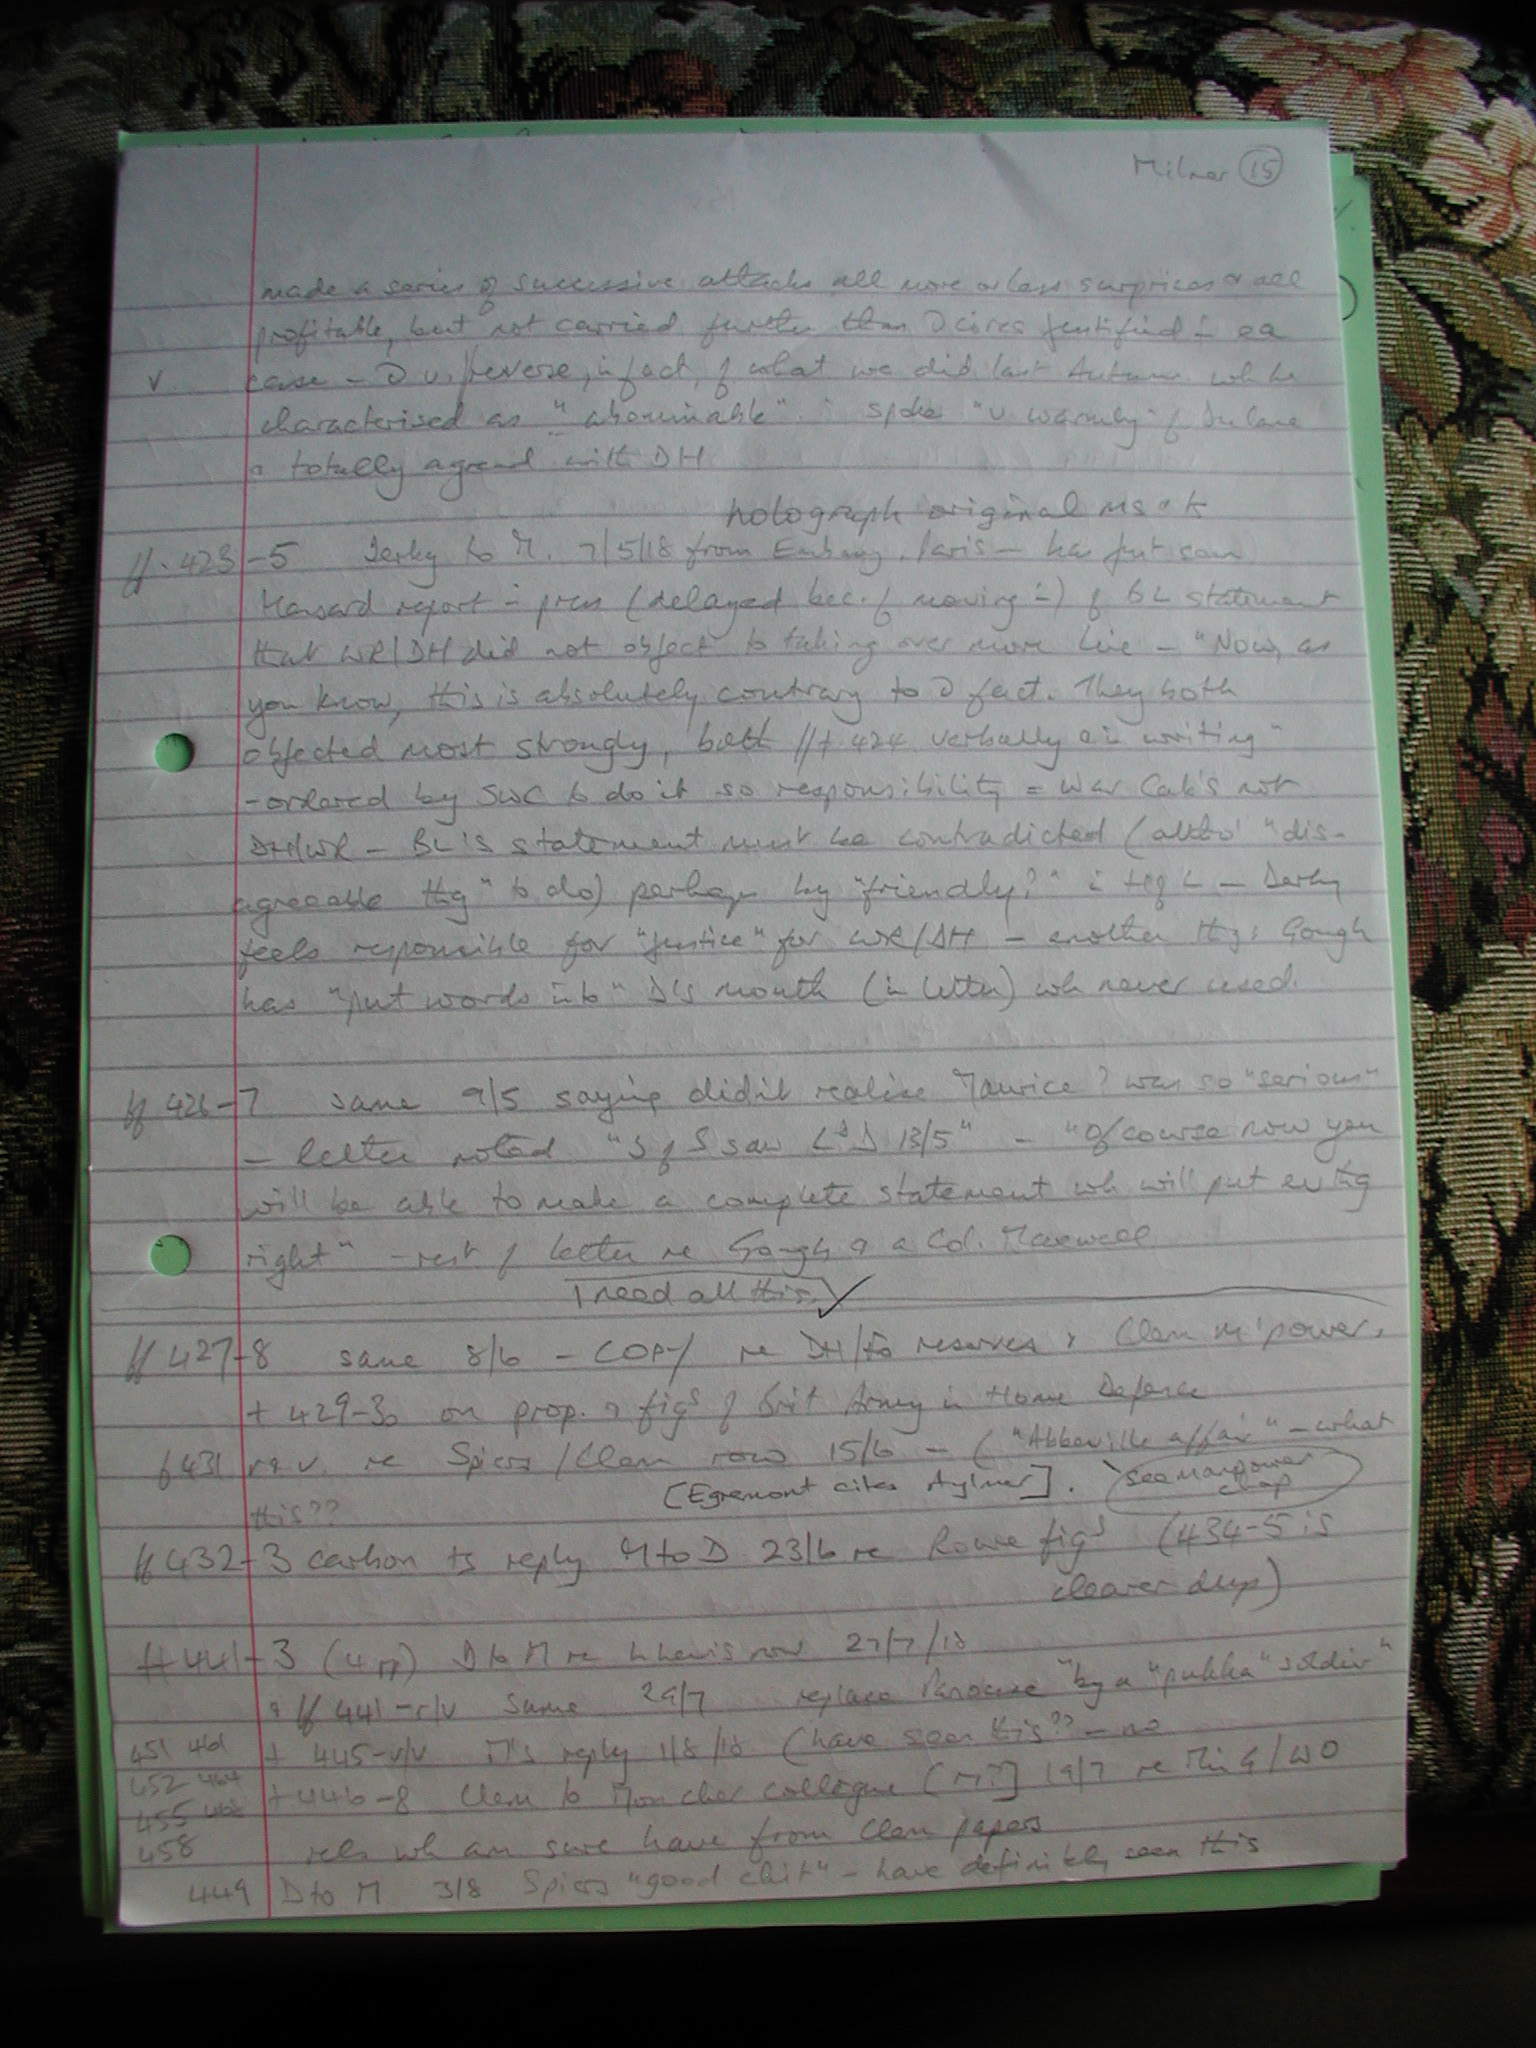 Milner 15
made a series of successive attacks all more or less surprises & all
profitable, but not carried further than justified = ea
v case - v. reverse, in fact, of what we did last Autumn wh he
characterised as "abominable". spoke "v warmly" of
& totally agreed with DH
holograph original ms
ff. 423-5 Derby to M. 7/5/18 from Embassy, Paris - has just seen
Hansard report - press (delayed bec. of moving) of BL statement
that WR/DH did not object to taking over more line - "Now, as
you know, this is absolutely contrary to fact. They both
objected most strongly, both //f.424 verbally & in writing"
- ordered by SWC to do it so responsibility = War Cab's not
DH/WR - BL's statement must be contradicted (altho' "dis-
agreeable thg" to do) perhaps by "friendly ?" in - Derby
feels responsible for "justice" for WR/DH - another thg, Gough
has "put words into" D's mouth (in letter) wh never used.
ff 426-7 same 9/5 saying didn't realise Maurice ? was so "serious"
- letter noted "S of S saw Ld D 13/5" - "Of course now you
will be able to make a complete statement wh will put evthg
right" - rest of letter re Gough & a Col. Maxwell
I need all this ✓
ff 427-8 same 8/6 - COPY re DH/Fo reserves, Clem m'power,
+ 429-30 on prop. & figs of Brit Army in Home Defence
f 431 r & v. re Spiers/Clem row 15/6 - ("Abbeville affair" - what
this?? [Egremont cites Aylmer]. see manpower
chap
ff 432-3 carbon ts reply M to D 23/6 re figs (434-5 is
clearer dup)
ff 441-3 (4 pp) D to M re row 27/7/18
+ ff 441-r/v same 29/7 replace "by a "pukka" soldier"
451 461 + 445-r/v M's reply 1/8/18 (have seen this?? - no
452 464 + 446-8 Clem to Mon cher collègue [M?] 19/7 re Min G/WO
455 468
458 rels wh am sure have from Clem papers
449 D to M 3/8 Spiers "good chit" - have definitely seen this